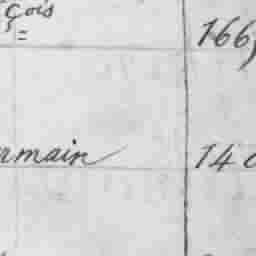 çois 166
rmain 14